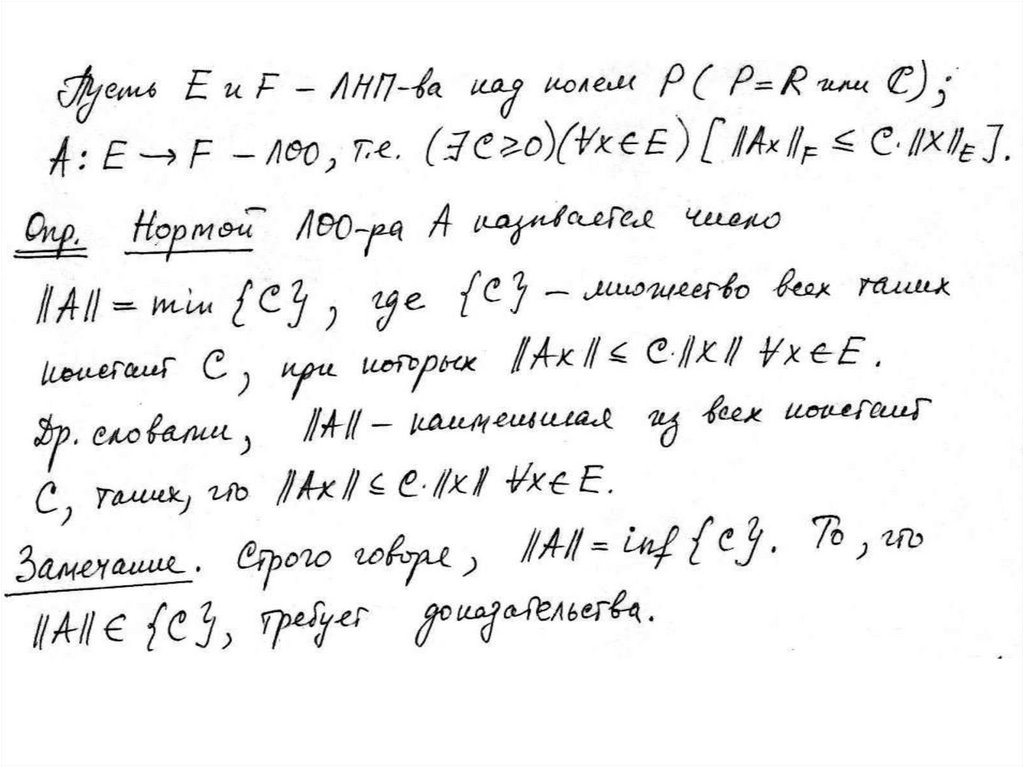 Пусть E и F – ЛНП-ва над полем P ( P = R или ℂ ) ;
A : E → F – ЛОО, т.е. (∃ C ≥ 0)(∀x ∈ E) [ ||Ax||_F ≤ C · ||x||_E ].
Опр. Нормой ЛОО-ра A называется число
||A|| = min {C}, где {C} – множество всех таких
констант C, при которых ||Ax|| ≤ C·||x|| ∀x ∈ E.
Др. словами, ||A|| – наименьшая из всех констант
C, таких, что ||Ax|| ≤ C·||x|| ∀x ∈ E.
Замечание. Строго говоря, ||A|| = inf {C}. То, что
||A|| ∈ {C}, требует доказательства.